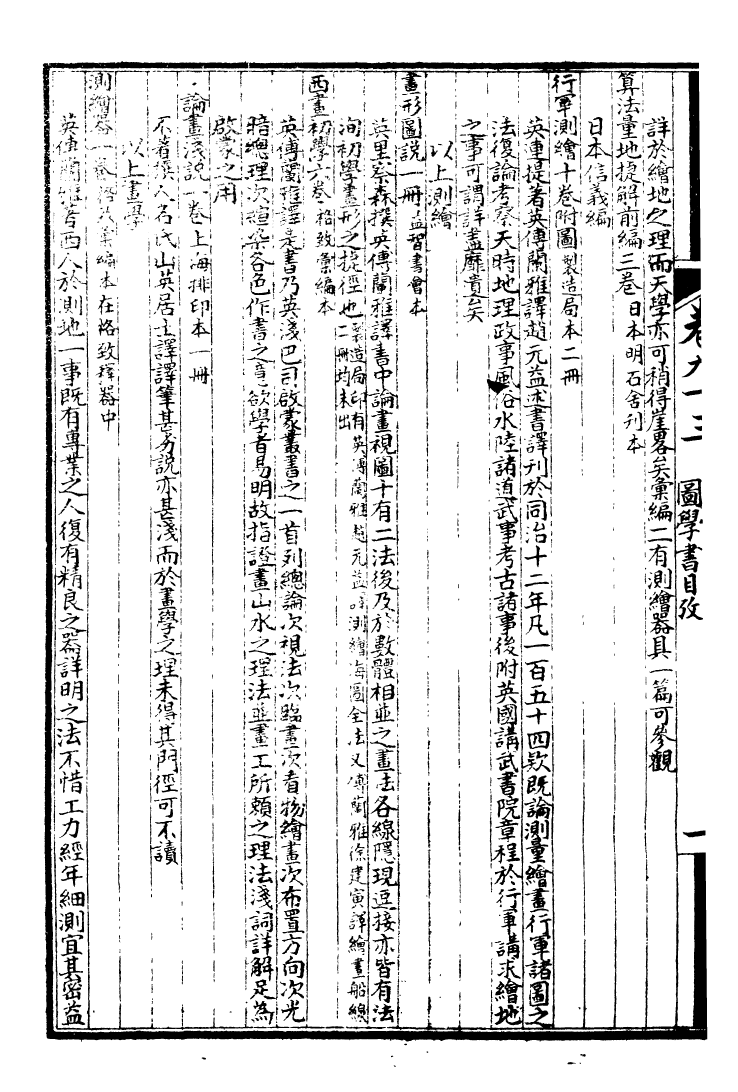 詳於繪地之理而天學亦可稍得崖畧矣彙編二有測繪器具一篇可參觀
算法量地捷解前編三卷 日本明石舍刊本
日本信義編
行軍測繪十卷附圖 製造局本二冊
英連提著英傅蘭雅譯趙元益述書譯刊於同治十二年凡一百五十四欵既論測量繪畫行軍諸圖之
法復論考察天時地理政事風俗水陸諸道武事考古諸事後附英國講武書院章程於行軍講求繪地
之事可謂詳盡靡遺矣
以上測繪
畫形圖說一冊 益智書會本
英里察森撰英傅蘭雅譯書中論畫視圖十有二法後及於數體相並之畫法各線隱現逗接亦皆有法
洵初學畫形之捷徑也 製造局印有英傅蘭雅趙元益譯測繪海圖全法又傅蘭雅徐建寅譯繪畫船線
二冊均未出
西畫初學六卷 格致彙編本
英傅蘭雅譯是書乃英淺巴司啟蒙叢書之一首列總論次視法次臨畫次看物繪畫次布置方向次光
暗總理次渲染各色作書之意欲學者易明故指證畫山水之理法並畫工所賴之理法淺詞詳解足為
啟蒙之用
論畫淺說一卷 上海排印本一冊
不著撰人名氏山英居士譯譯筆甚劣說亦甚淺而於畫學之理未得其門徑可不讀
以上畫學
測繪器一卷 格致彙編本在格致釋器中
英傅蘭雅著西人於測地一事既有專業之人復有精良之器詳明之法不惜工力經年細測宜其密益
卷九十三
圖學書目攷
一